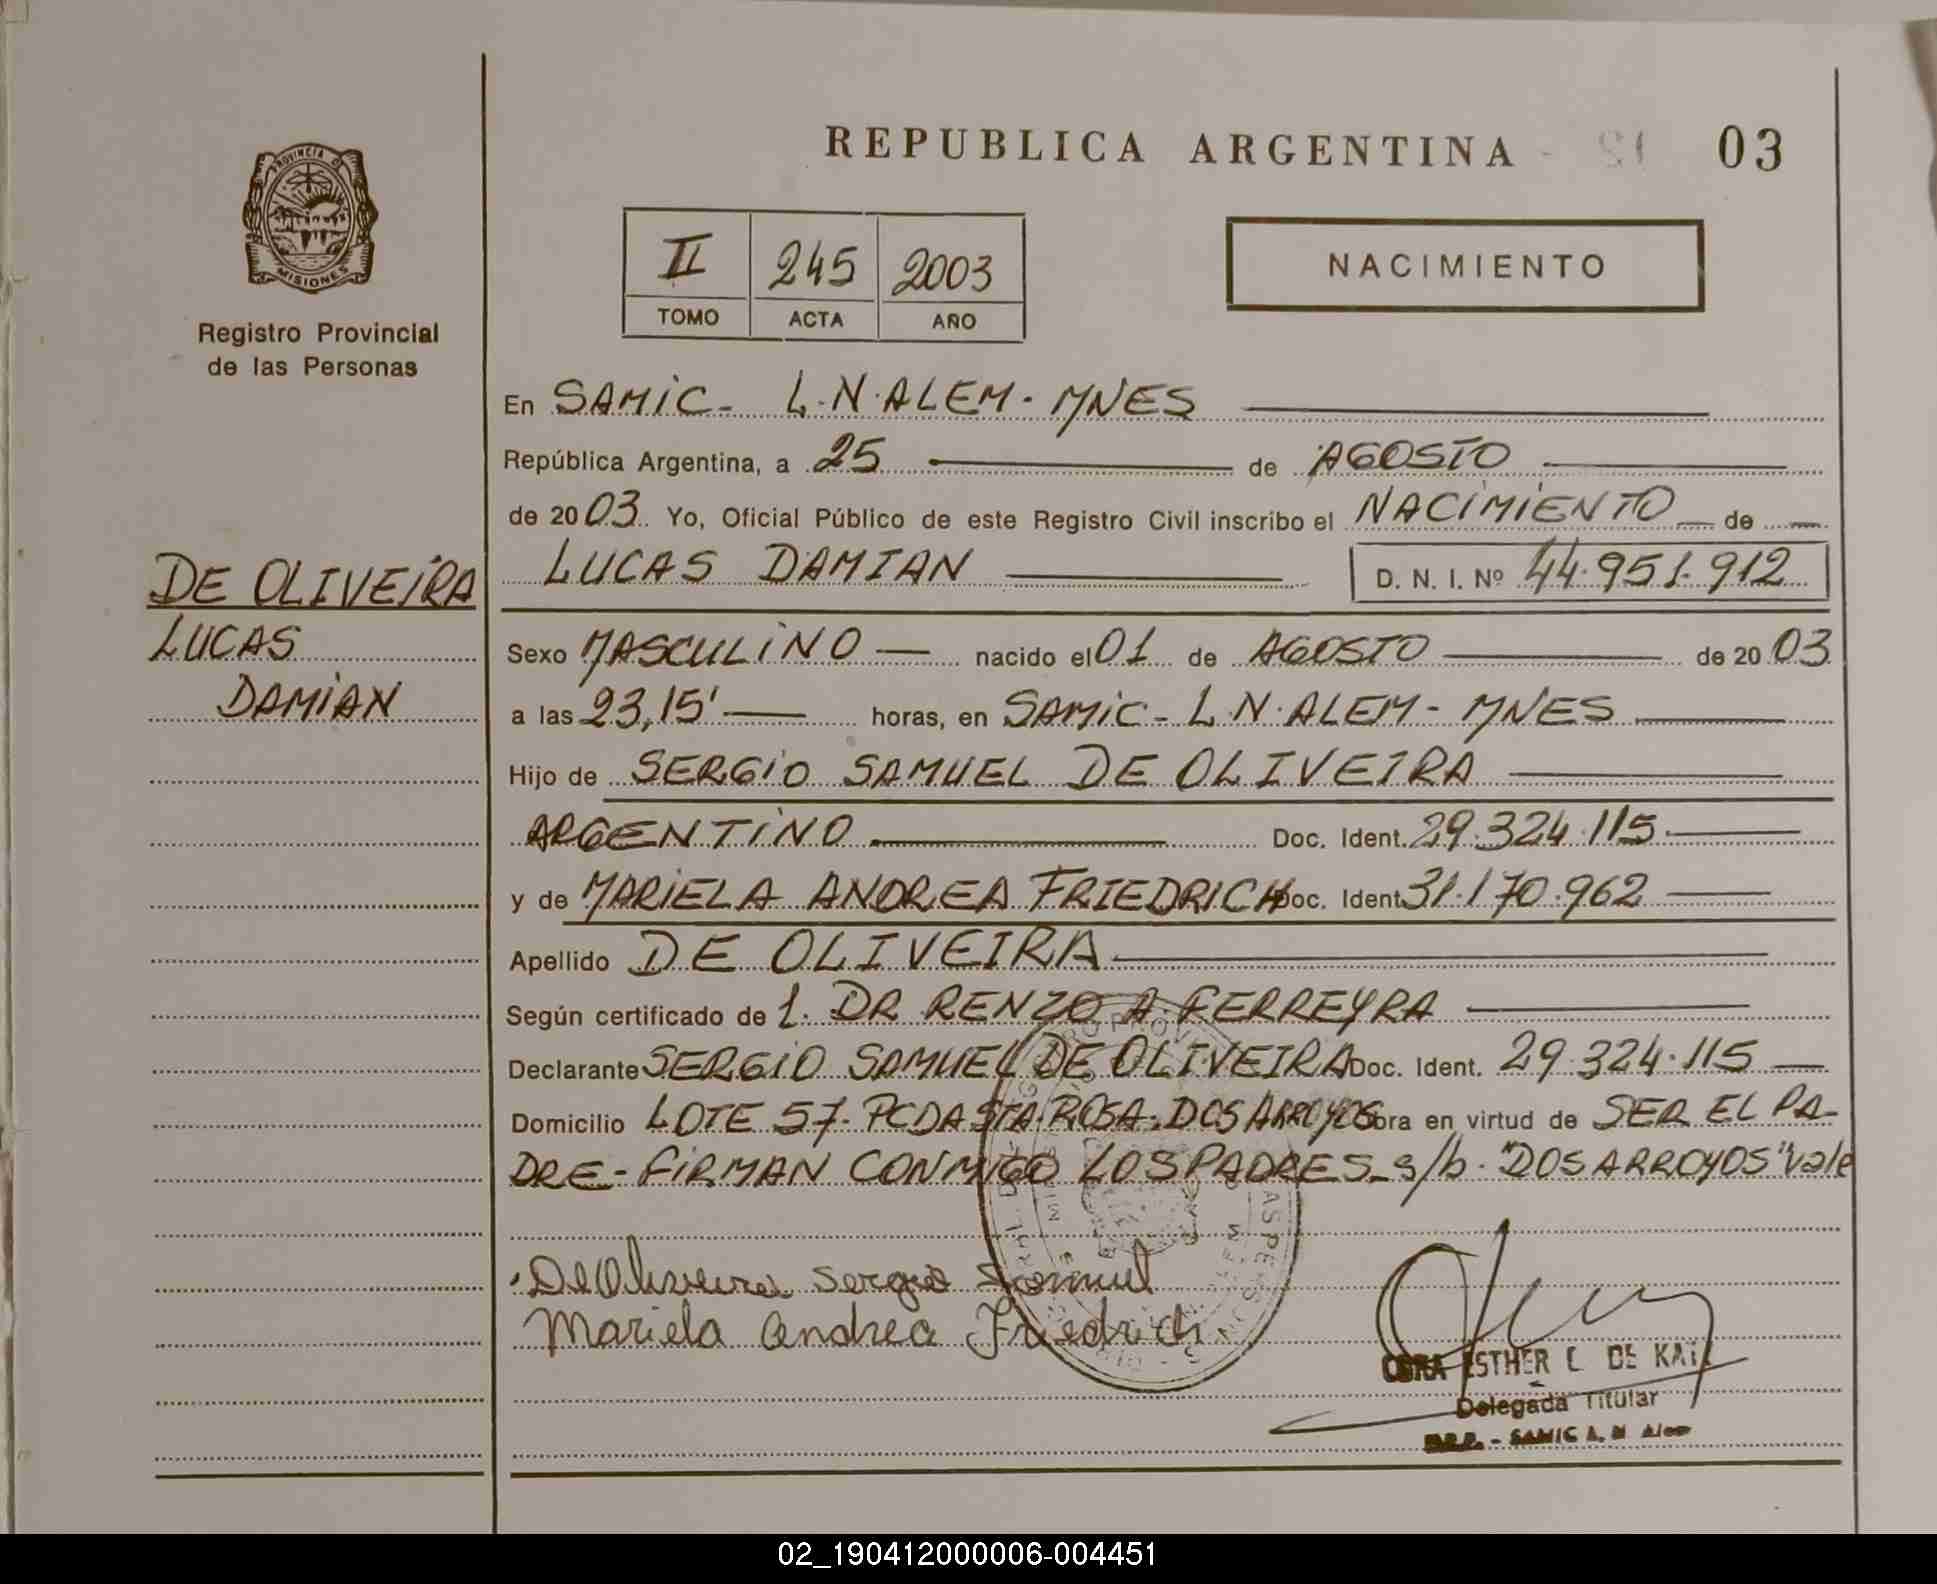 REPUBLICA ARGENTINA 03
PROVINCIA D
MISIONES
Registro Provincial
de las Personas
II 245 2003
TOMO ACTA AÑO
NACIMIENTO
En SAMIC - L.N. ALEM - MNES
República Argentina, a 25 de AGOSTO
de 2003. Yo, Oficial Público de este Registro Civil inscribo el NACIMIENTO de
LUCAS DAMIAN D. N. I. Nº 44.951.912
DE OLIVEIRA
LUCAS
DAMIAN
Sexo MASCULINO nacido el 01 de AGOSTO de 2003
a las 23,15' horas, en SAMIC - L.N. ALEM - MNES
Hijo de SERGIO SAMUEL DE OLIVEIRA
ARGENTINO Doc. Ident. 29.324.115
y de MARIELA ANDREA FRIEDRICH Doc. Ident. 31.170.962
Apellido DE OLIVEIRA
Según certificado de 1. DR RENZO A FERREYRA
Declarante SERGIO SAMUEL DE OLIVEIRA Doc. Ident. 29.324.115
Domicilio LOTE 57 - PCDA STA. ROSA. DOS ARROYOS obra en virtud de SER EL PA-
DRE - FIRMAN CONMIGO LOS PADRES - s/b. "DOS ARROYOS" Vale
De Oliveira Sergio Samuel
Mariela Andrea Friedrich
ESTHER DE
Delegada Titular
SAMIC L. N Alem
02_190412000006-004451